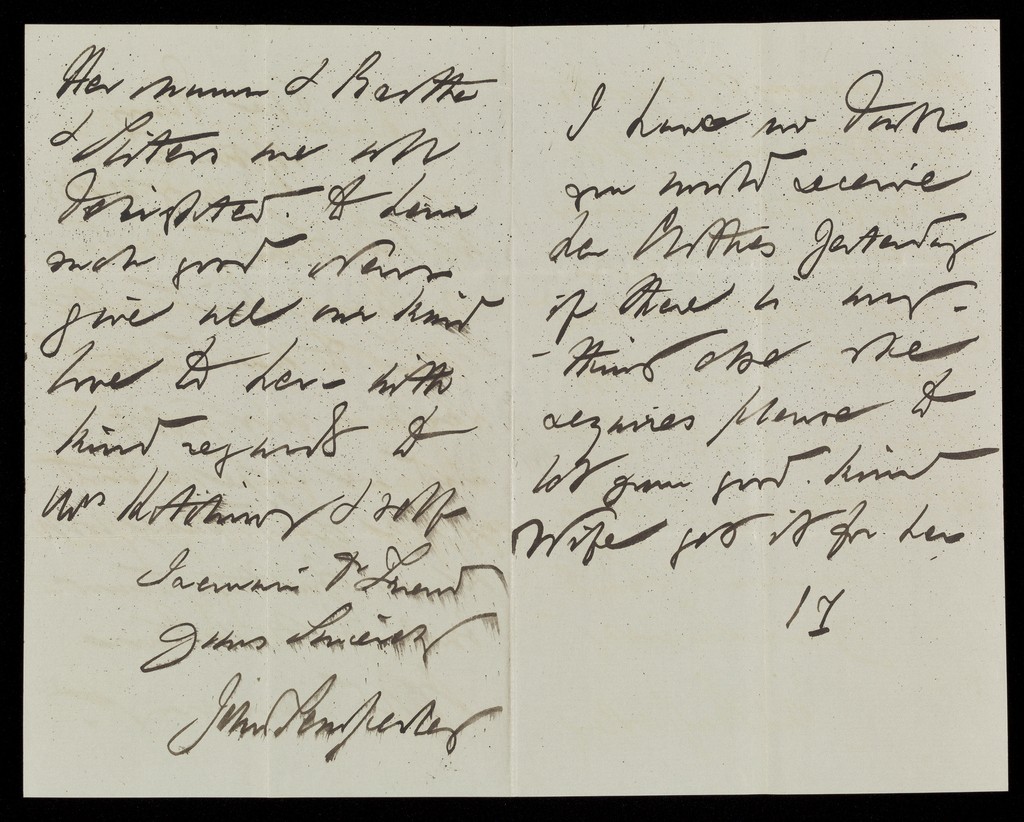 Her mamma & Brother
& Sisters are all
delighted. to hear
such good News
give all our kind
love to her - with
kind regards to
Mrs & self
I remain Dr Friend
Yours Sincerely
John
I have no doubt
you would receive
her Clothes yesterday
if there is any -
- thing else she
requires please to
let your good. kind
Wife get it for her